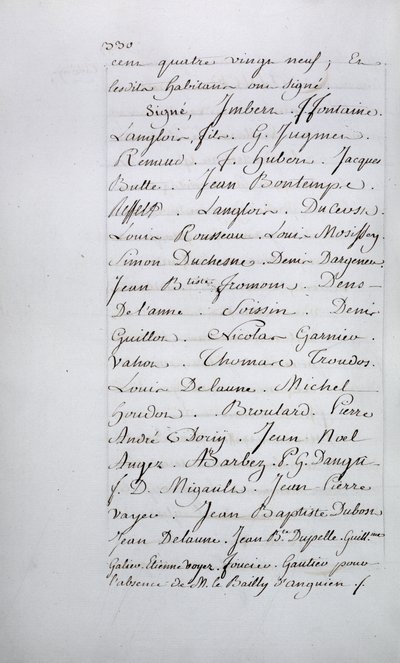 330
cent quatre vingt neuf; Et
lesdits habitans ont signé.
Signé, Imbert. f. fontaine.
Langlois, fils. G. Jugmet
Renaud. f. Hubert. Jacques
Butte. Jean Bontemps.
Reffets. Langlois. Ducross.
Louis Rousseau. Louis
Simon Duchesne. Denis Dargenet.
Jean Btiste fromont. Denis
De l'anne. Soissin. Denis
Guillot. Nicolas Garnier.
Vahor. Thomas Troudos.
Louis Delaune. Michel
houdon. Broulard. Pierre
André Dorin. Jean Noel
Auger. A. Barbez. P. G. Dangu
f. D. Migault. Jean Pierre
Vayer. Jean Baptiste Dubon
Jean Delaune. Jean Bte. Dupelle. Guillme
Galier. Etienne Voyer. Foucier. Gautier pour
l'absence de M. le Bailly d'anguien ./.